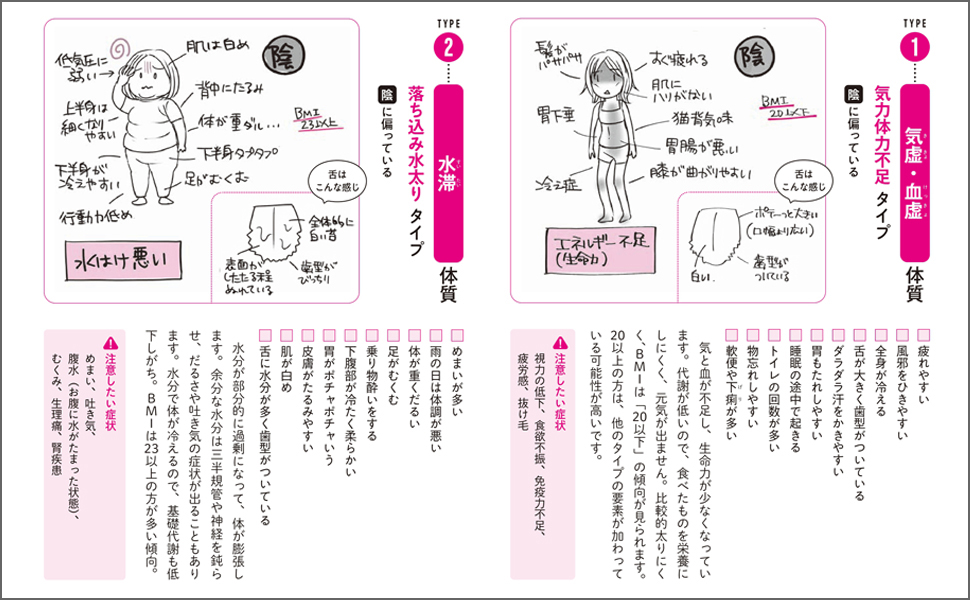 TYPE
1
気力体力不足タイプ
陰に偏っている
気虚・血虚
ききょ
けっきょ
体質
陰
髪がパサパサ
すぐ疲れる
肌に
ハリがない
BMI
20以下
胃下垂
猫背気味
胃腸が悪い
冷え症
膝が曲がりやすい
エネルギー不足
(生命力)
舌は
こんな感じ
ボテーっと大きい
(口幅より広い)
白い
歯型が
ついている
疲れやすい
風邪をひきやすい
全身が冷える
舌が大きく歯型がついている
ダラダラ汗をかきやすい
胃もたれしやすい
睡眠の途中で起きる
トイレの回数が多い
物忘れしやすい
軟便や下痢が多い
気と血が不足し、生命力が少なくなってい
ます。代謝が低いので、食べたものを栄養に
しにくく、元気が出ません。比較的太りにく
く、BMIは「20以下」の傾向が見られます。
20以上の方は、他のタイプの要素が加わって
いる可能性が高いです。
注意したい症状
視力の低下、食欲不振、免疫力不足、
疲労感、抜け毛
TYPE
2
落ち込み水太りタイプ
陰に偏っている
水滞
すいたい
体質
陰
低気圧に
弱い
肌は白め
背中にたるみ
上半身は
細くなり
やすい
BMI
23以上
体が重ダル…
下半身タプタプ
下半身が
冷えやすい
足がむくむ
行動力低め
水はけ悪い
舌は
こんな感じ
全体的に
白い苔
表面が
したたる程
ぬれている
歯型が
びっちり
めまいが多い
雨の日は体調が悪い
体が重くだるい
足がむくむ
乗り物酔いをする
下腹部が冷たく柔らかい
胃がポチャポチャいう
皮膚がたるみやすい
肌が白め
舌に水分が多く歯型がついている
水分が部分的に過剰になって、体が膨張し
ます。余分な水分は三半規管や神経を鈍ら
せ、だるさや吐き気の症状が出ることもあり
ます。水分で体が冷えるので、基礎代謝も低
下しがち。BMIは23以上の方が多い傾向。
注意したい症状
めまい、吐き気、
腹水（お腹に水がたまった状態）、
むくみ、生理痛、腎疾患